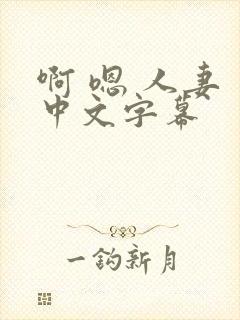 啊 嗯 人妻
中文字幕
一钩新月